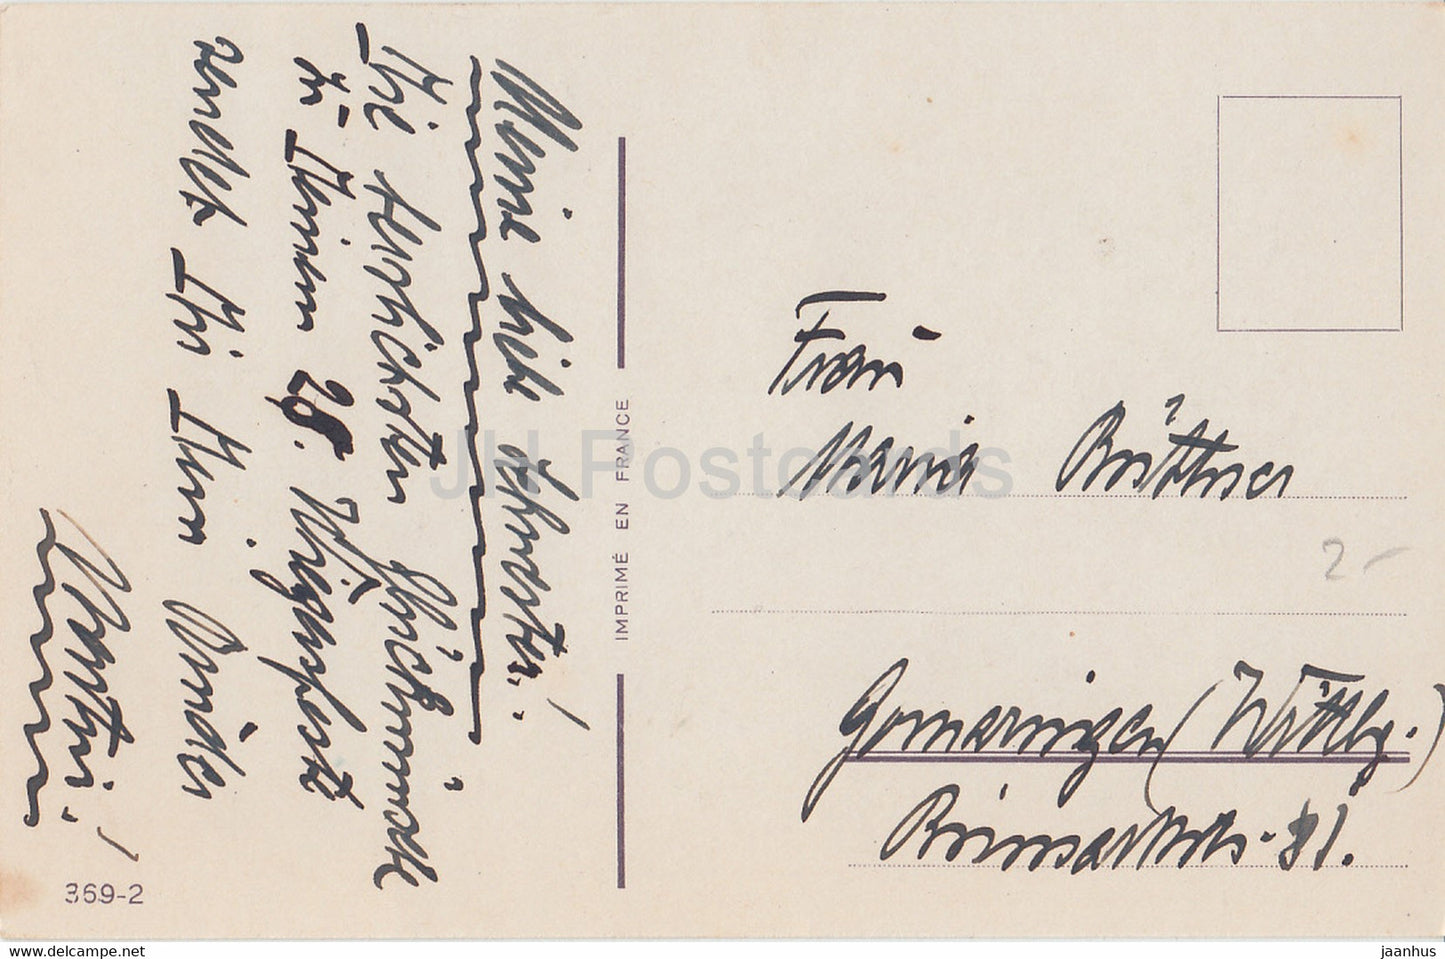 Meine liebe Schwester!
Die herzlichsten Glückwünsche
zu Deinem 28. Wiegenfeste
sendet Dir Dein Bruder
Martin!
369-2
IMPRIMÉ EN FRANCE
Frau
Maria Büttner
2-
Gomaringen (Württbg.)
Bismarckstr. 81.
JH Postcards
www.delcampe.net
jaanhus